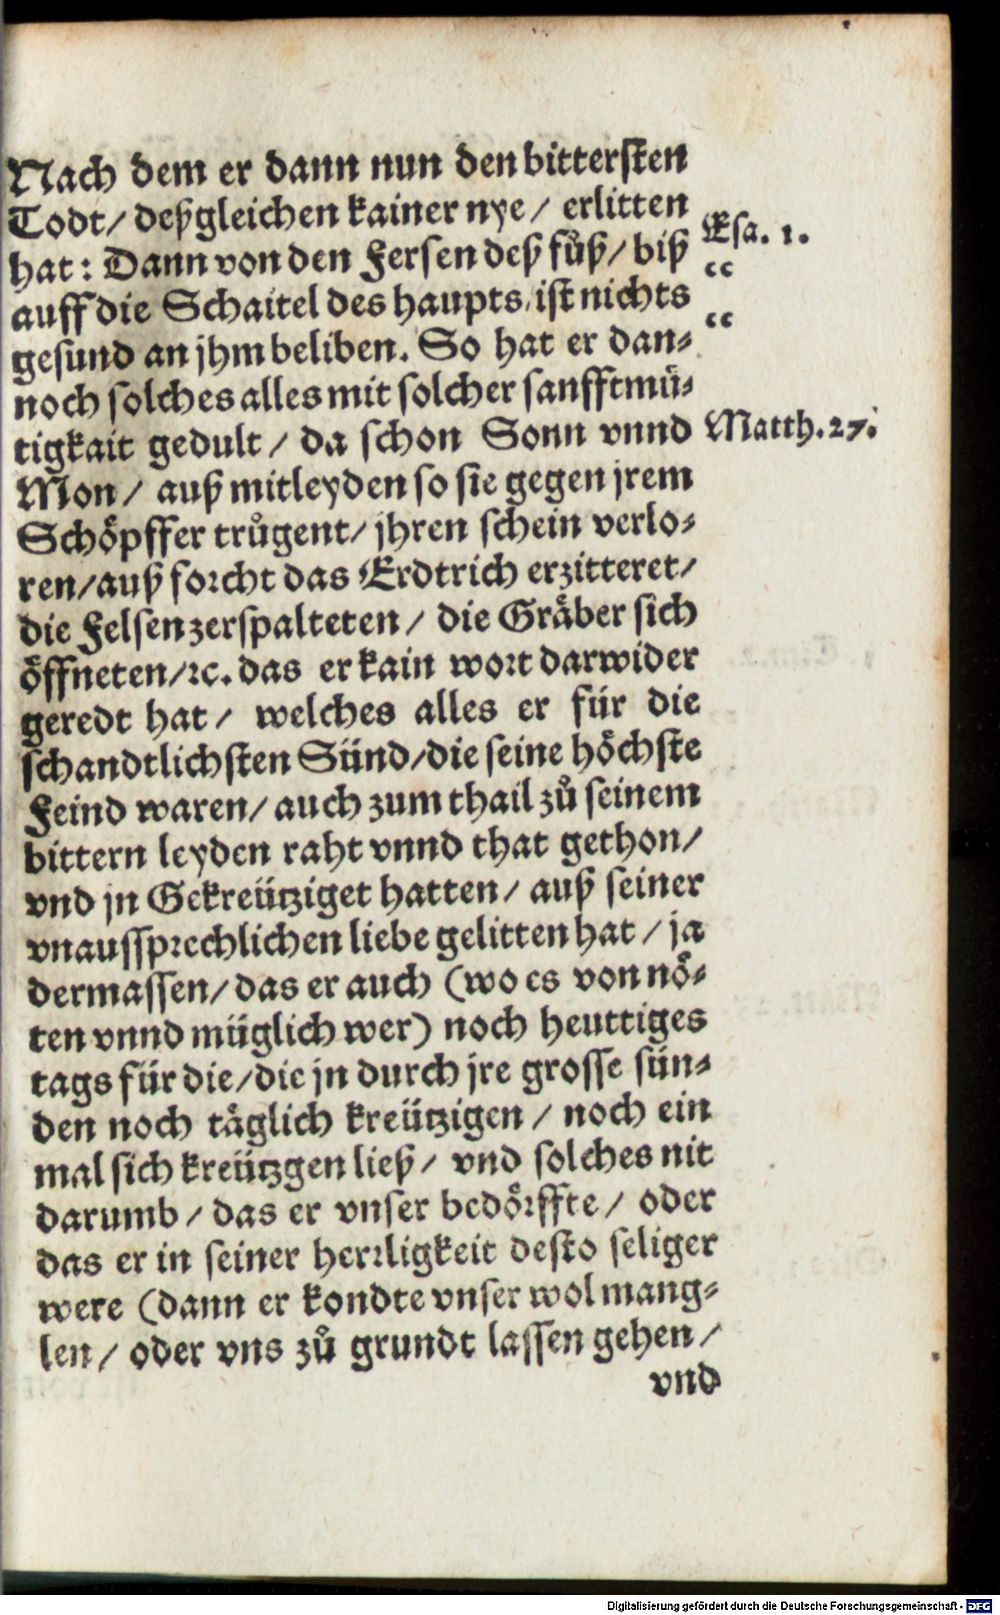 Nach dem er dann nun den bittersten
Todt/ deßgleichen kainer nye/ erlitten
hat: Dann von den Fersen deß fůß/ biß
Esa. 1.
“
auff die Schaitel des haupts/ ist nichts
“
gesund an jhm beliben. So hat er dan⸗
noch solches alles mit solcher sanfftmü⸗
tigkait gedult/ da schon Sonn vnnd
Matth. 27.
Mon/ auß mitleyden so sie gegen jrem
Schöpffer trůgent/ jhren schein verlo⸗
ren/ auß forcht das Erdtrich erzitteret/
die Felsen zerspalteten/ die Gräber sich
öffneten/ ꝛc. das er kain wort darwider
geredt hat/ welches alles er für die
schandtlichsten Sünd/ die seine höchste
Feind waren/ auch zum thail zů seinem
bittern leyden raht vnnd that gethon/
vnd jn Gekreütziget hatten/ auß seiner
vnaussprechlichen liebe gelitten hat/ ja
dermassen/ das er auch (wo es von nö⸗
ten vnnd müglich wer) noch heuttiges
tags für die/ die jn durch jre grosse sün⸗
den noch täglich kreützigen/ noch ein
mal sich kreützgen ließ/ vnd solches nit
darumb/ das er vnser bedörffte/ oder
das er in seiner herrligkeit desto seliger
were (dann er kondte vnser wol mang⸗
len/ oder vns zů grundt lassen gehen/
vnd
Digitalisierung gefördert durch die Deutsche Forschungsgemeinschaft - DFG